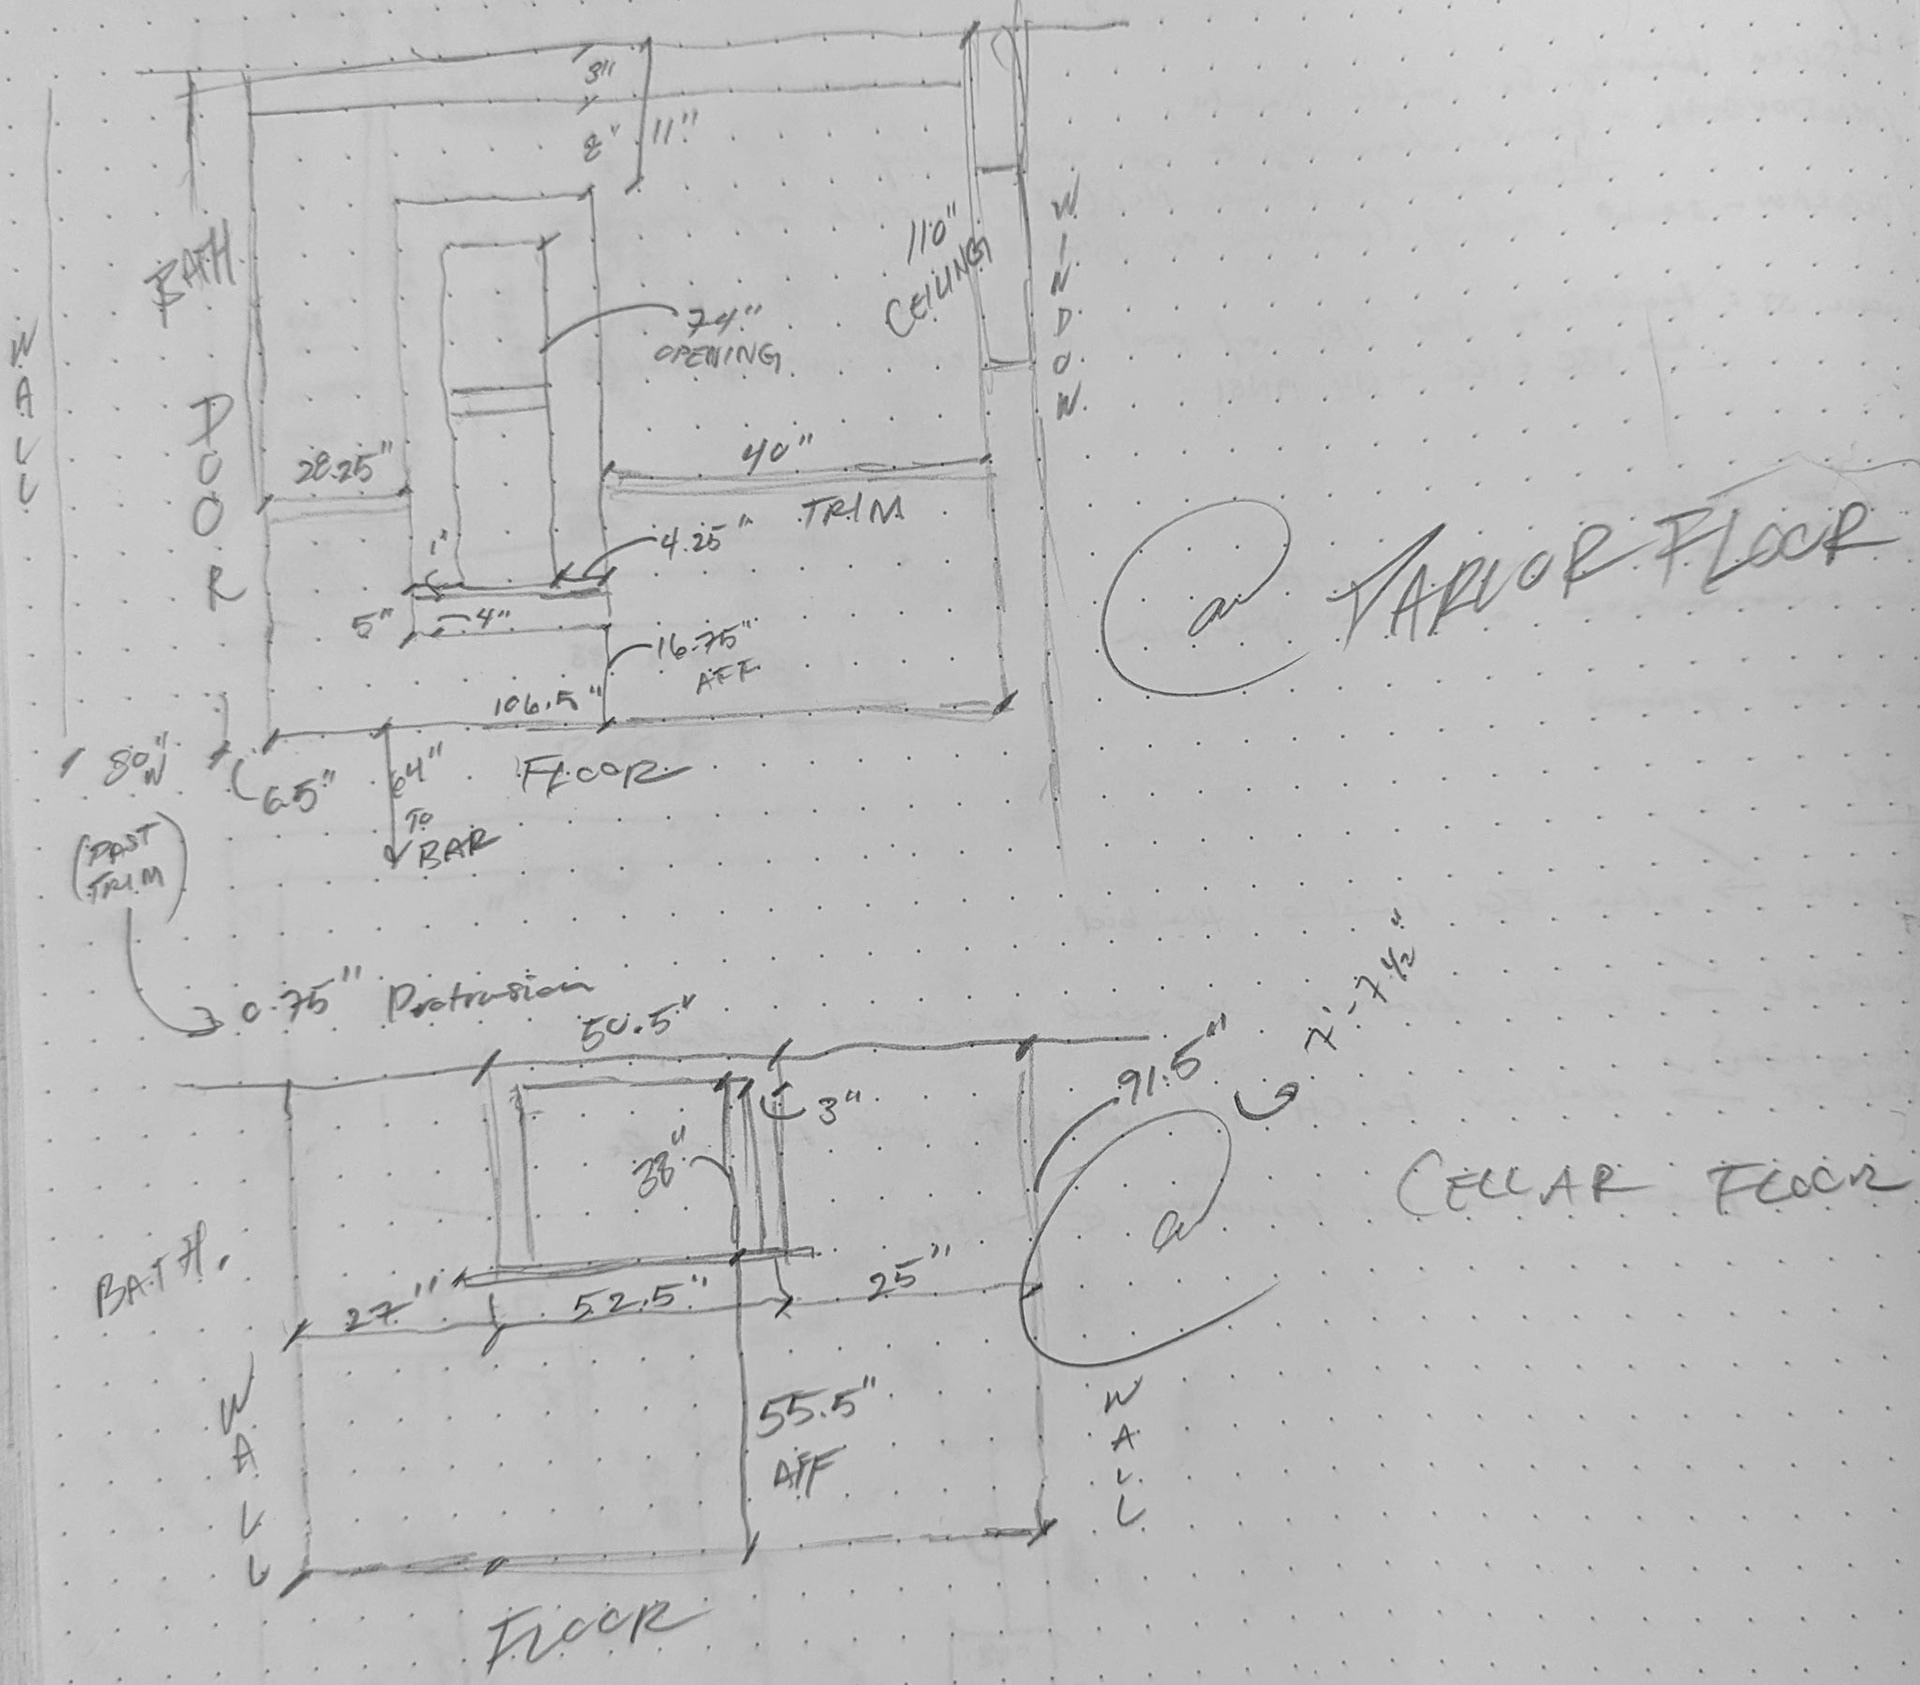 3"
8"
11"
WALL
BATH.
DOOR
110"
CEILING
WINDOW
74"
OPENING
28.25"
40"
TRIM
1"
4.25"
5"
4"
16.75"
AFF
@ PARLOR FLOOR
106.5"
FLOOR
80"
W
6.5"
64"
TO
BAR
(PAST
TRIM)
0.75" Protrusion
50.5"
91.5"
7'-7 1/2"
3"
38"
@ CELLAR FLOOR
BATH.
WALL
27"
52.5"
25"
55.5"
AFF
WALL
FLOOR